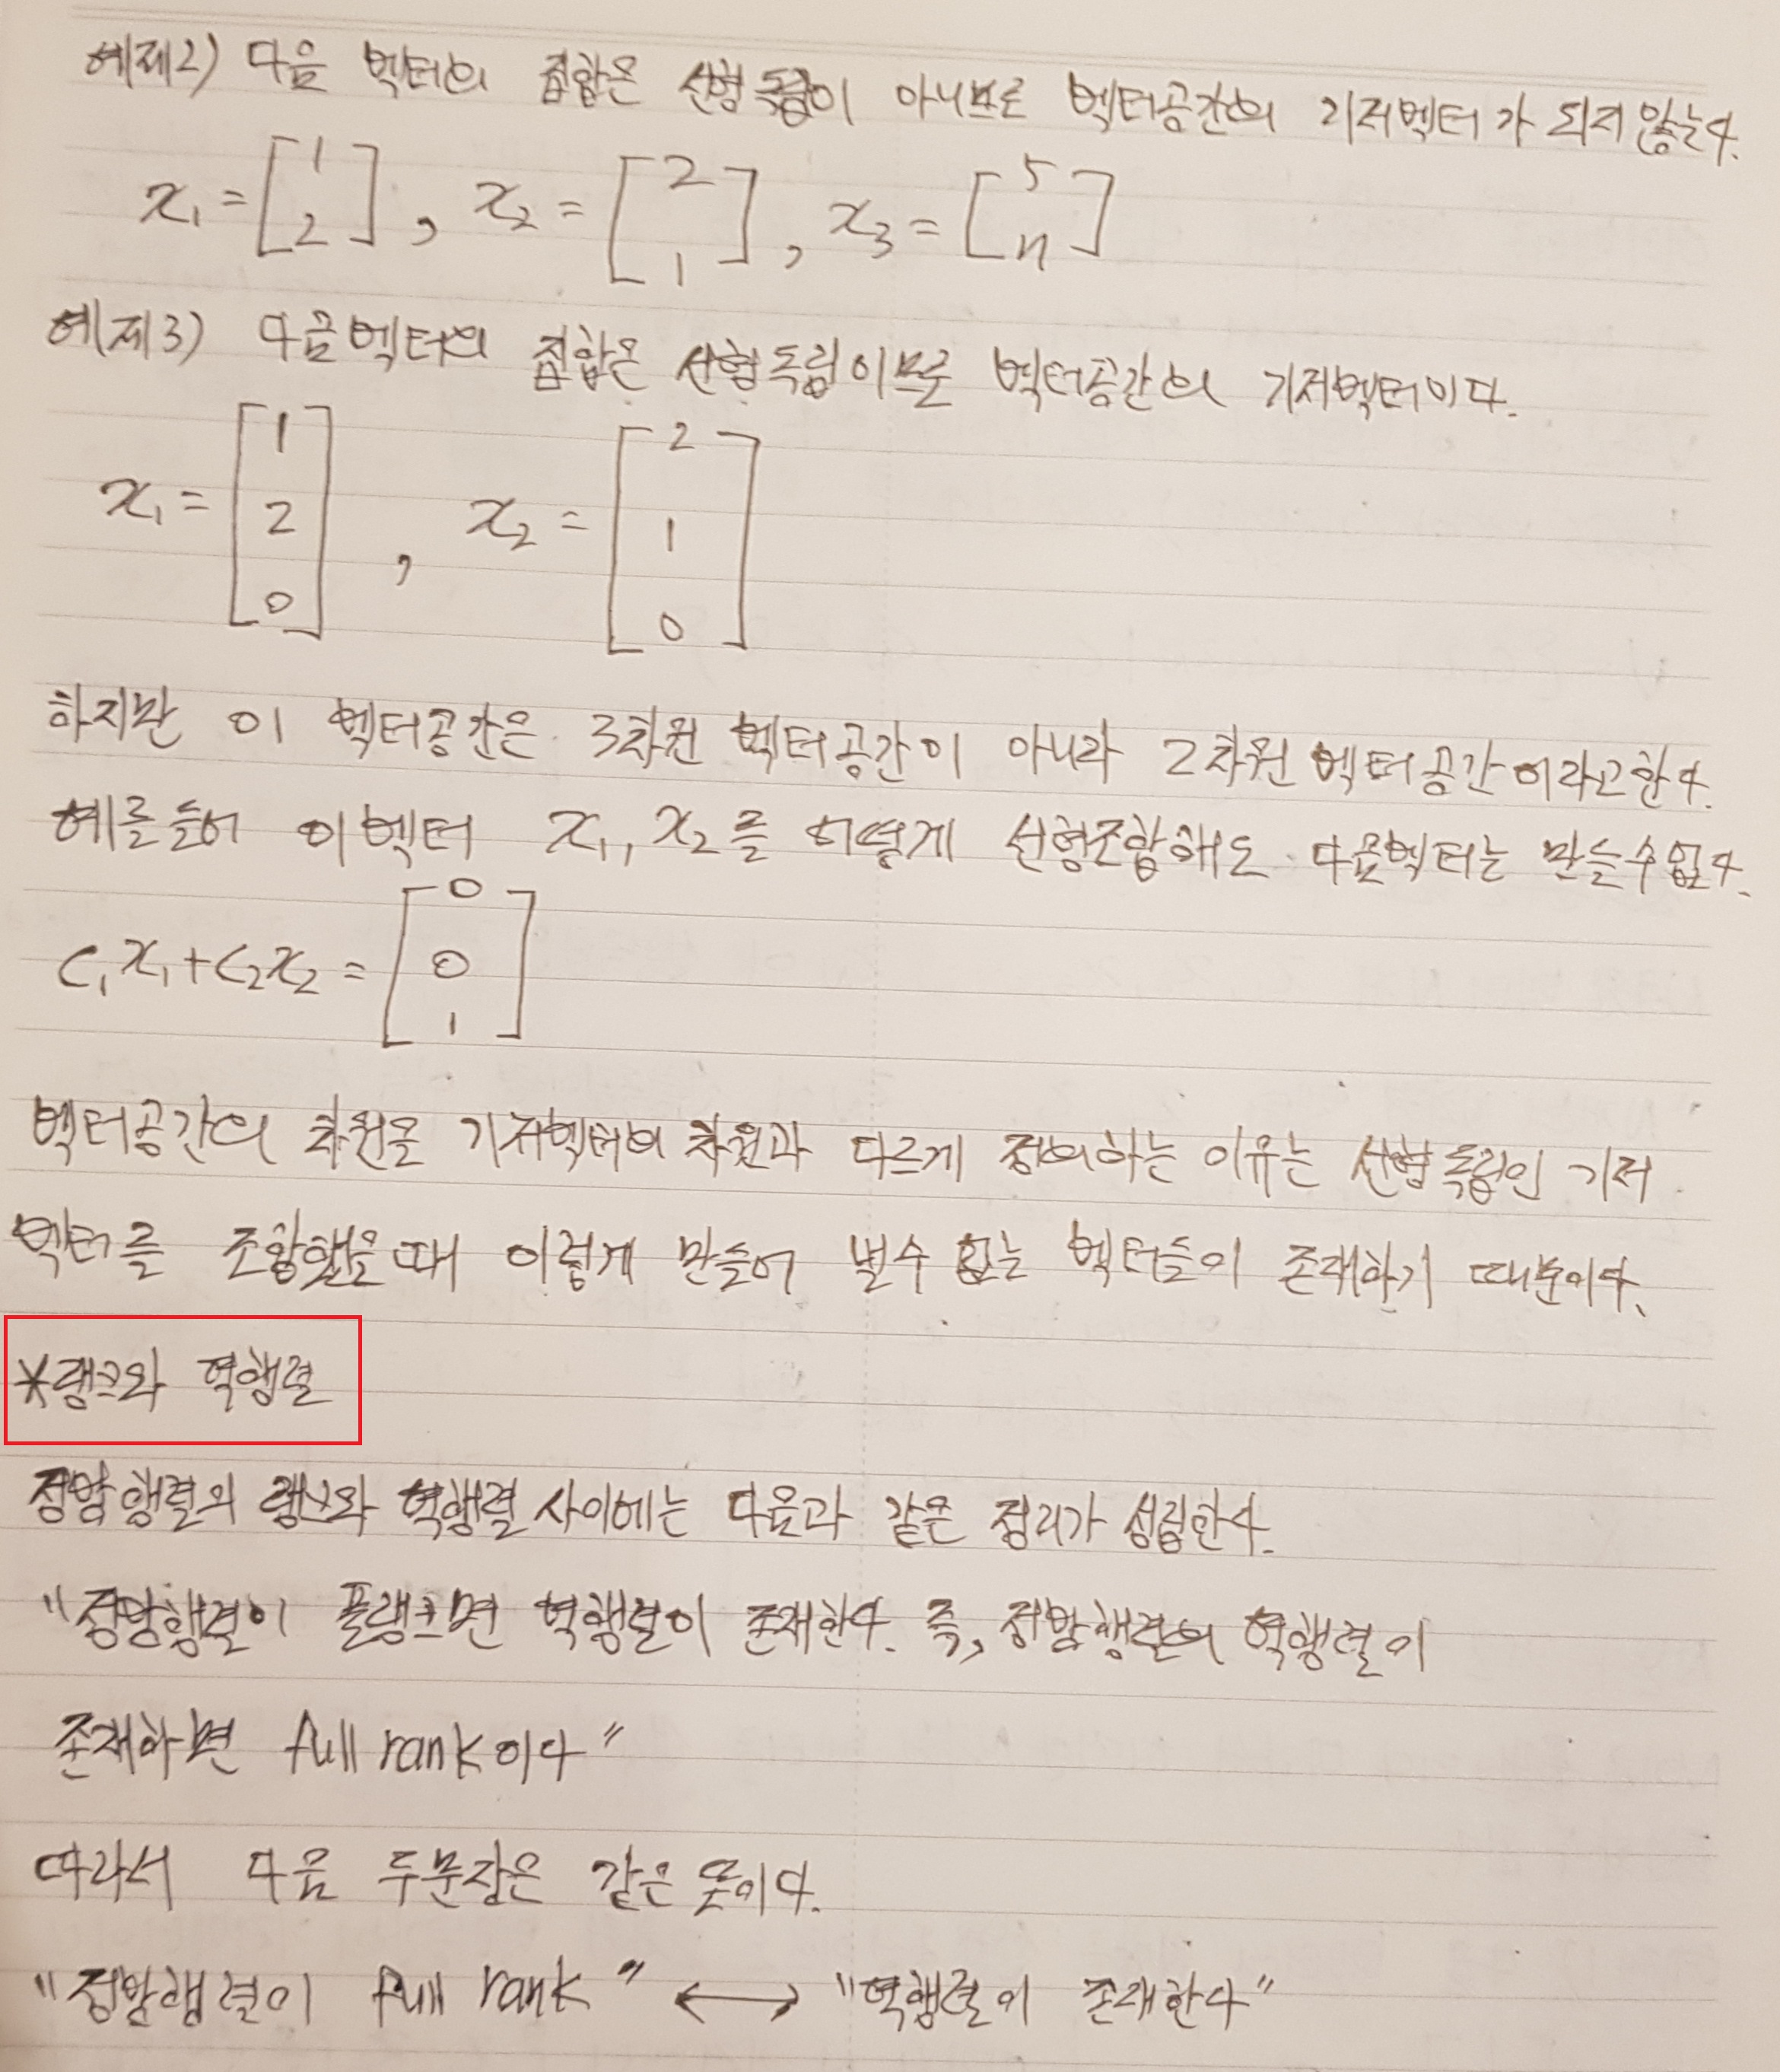 예제2) 다음 벡터의 집합은 선형 독립이 아니므로 벡터공간의 기저벡터가 되지 않는다.
x₁ = [1 2], x₂ = [2 1], x₃ = [5 n]
예제3) 다음벡터의 집합은 선형독립이므로 벡터공간의 기저벡터이다.
x₁ = [1 2 0], x₂ = [2 1 0]
하지만 이 벡터공간은 3차원 벡터공간이 아니라 2차원 벡터공간이라고한다.
예를들어 이벡터 x₁, x₂를 어떻게 선형조합해도 다음벡터는 만들수없다.
c₁x₁+c₂x₂ = [0 0 1]
벡터공간의 차원을 기저벡터의 차원과 다르게 정의하는 이유는 선형독립인 기저
벡터를 조합했을때 이렇게 만들어 낼수 없는 벡터들이 존재하기 때문이다.
*랭크와 역행렬
정방행렬의 랭크와 역행렬 사이에는 다음과 같은 정리가 성립한다.
"정방행렬이 풀랭크면 역행렬이 존재한다. 즉, 정방행렬의 역행렬이
존재하면 full rank이다"
따라서 다음 두문장은 같은 뜻이다.
"정방행렬이 full rank" ⟷ "역행렬이 존재한다"